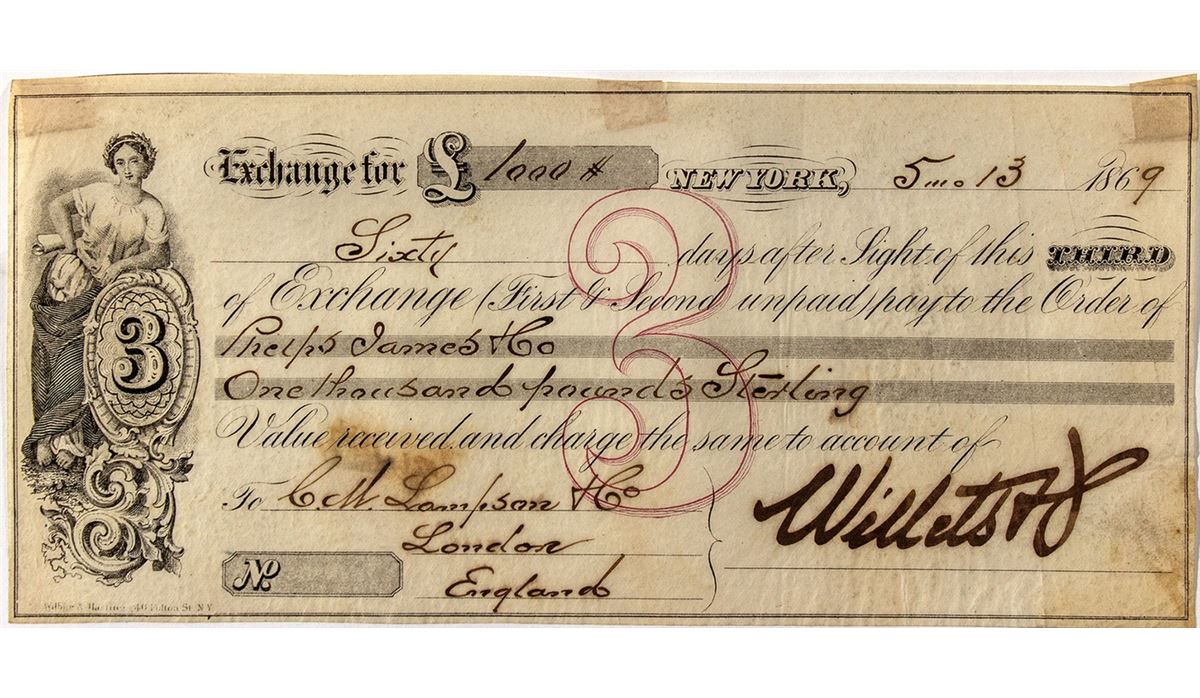 Exchange for £ 1000 # NEW YORK, 5 mo 13 1869
Sixty days after Sight of this THIRD
of Exchange (First & Second unpaid) pay to the Order of
Phelps James & Co
One thousand pounds Sterling
Value received and charge the same to account of
To C. M. Lampson & Co
London
England
Willets &
No.
3
3
40 Fulton St. N.Y.